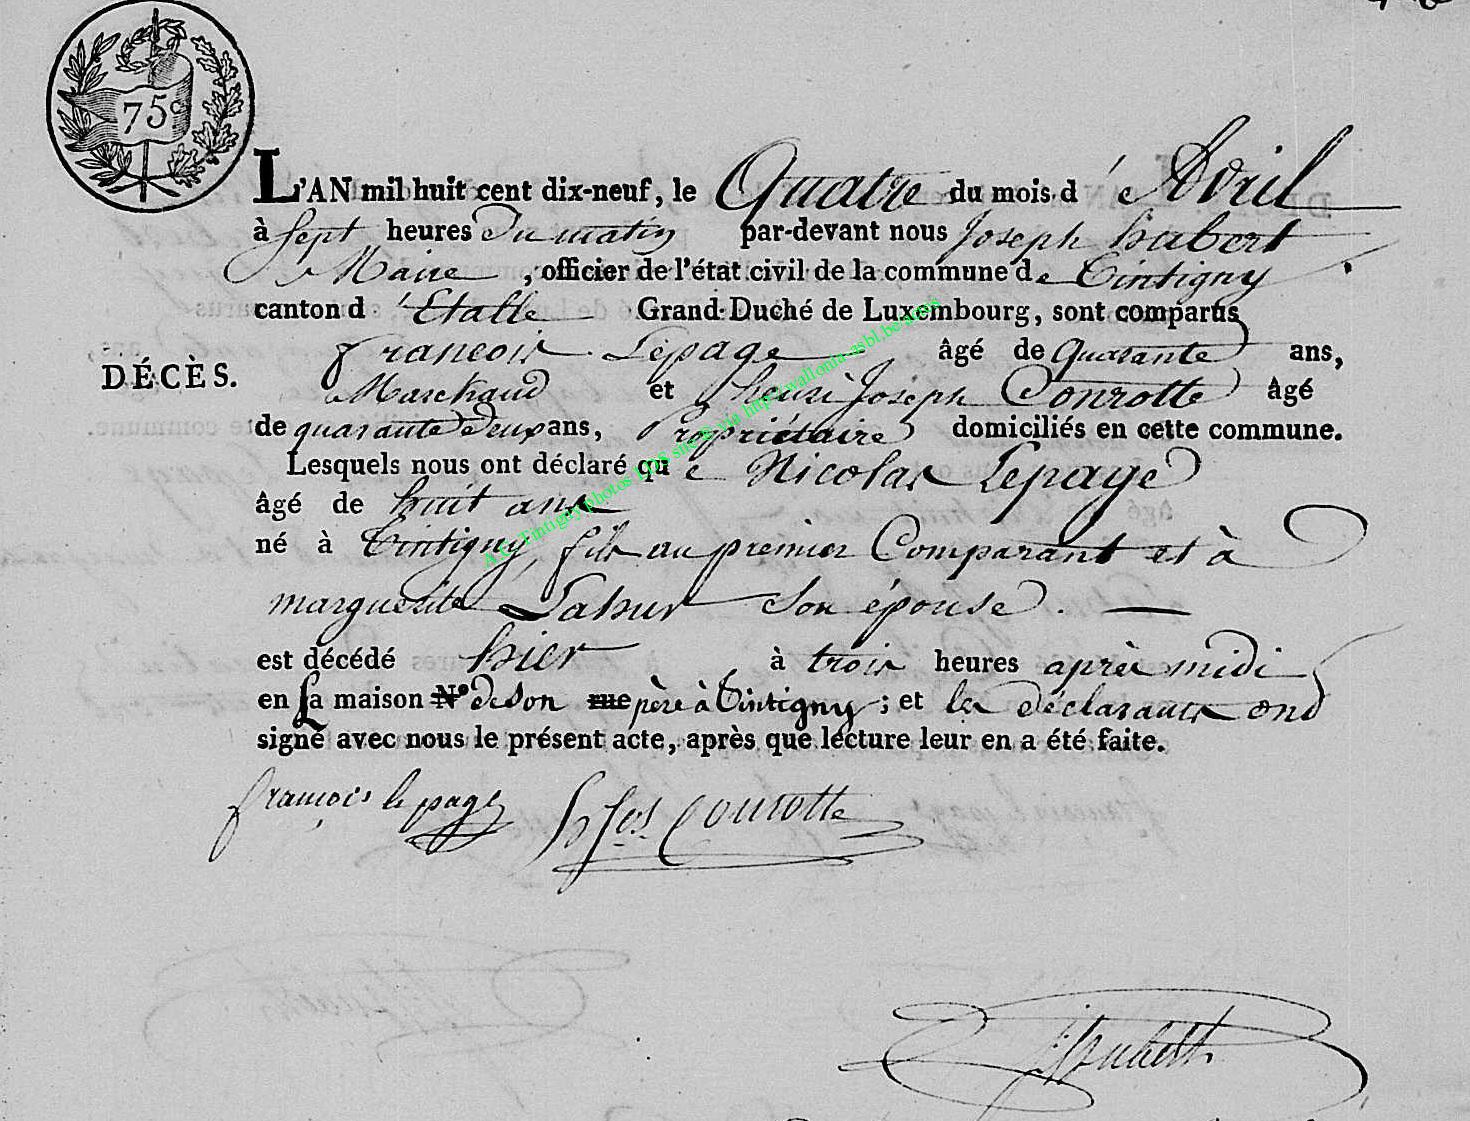 75c
L'AN mil huit cent dix-neuf, le Quatre du mois d'Avril
à Sept heures du matin par-devant nous Joseph hubert
Maire, officier de l'état civil de la commune de Tintigny
canton d'Etalle Grand-Duché de Luxembourg, sont comparus
francois Lepage âgé de Quarante ans,
DÉCÈS.
Marchand et henri Joseph Conrotte âgé
de quarante deux ans, Propriétaire domiciliés en cette commune.
Lesquels nous ont déclaré que Nicolas Lepage
âgé de huit ans
né à Tintigny, fils au premier Comparant et à
marguerite Lahur son épouse.
est décédé hier à trois heures après midi
en La maison N° de son rue père à Tintigny ; et les déclarants ont
signé avec nous le présent acte, après que lecture leur en a été faite.
françois le page h Jos Conrotte
J hubert
A.E. Tintigny photos LDS site © via http://wallonia-asbl.be/actes